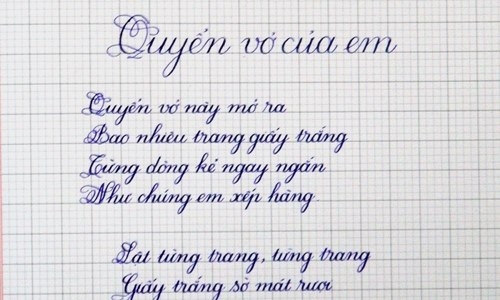 Quyển vở của em
Quyển vở này mở ra
Bao nhiêu trang giấy trắng
Từng dòng kẻ ngay ngắn
Như chúng em xếp hàng.
Lật từng trang, từng trang
Giấy trắng sờ mát rượi